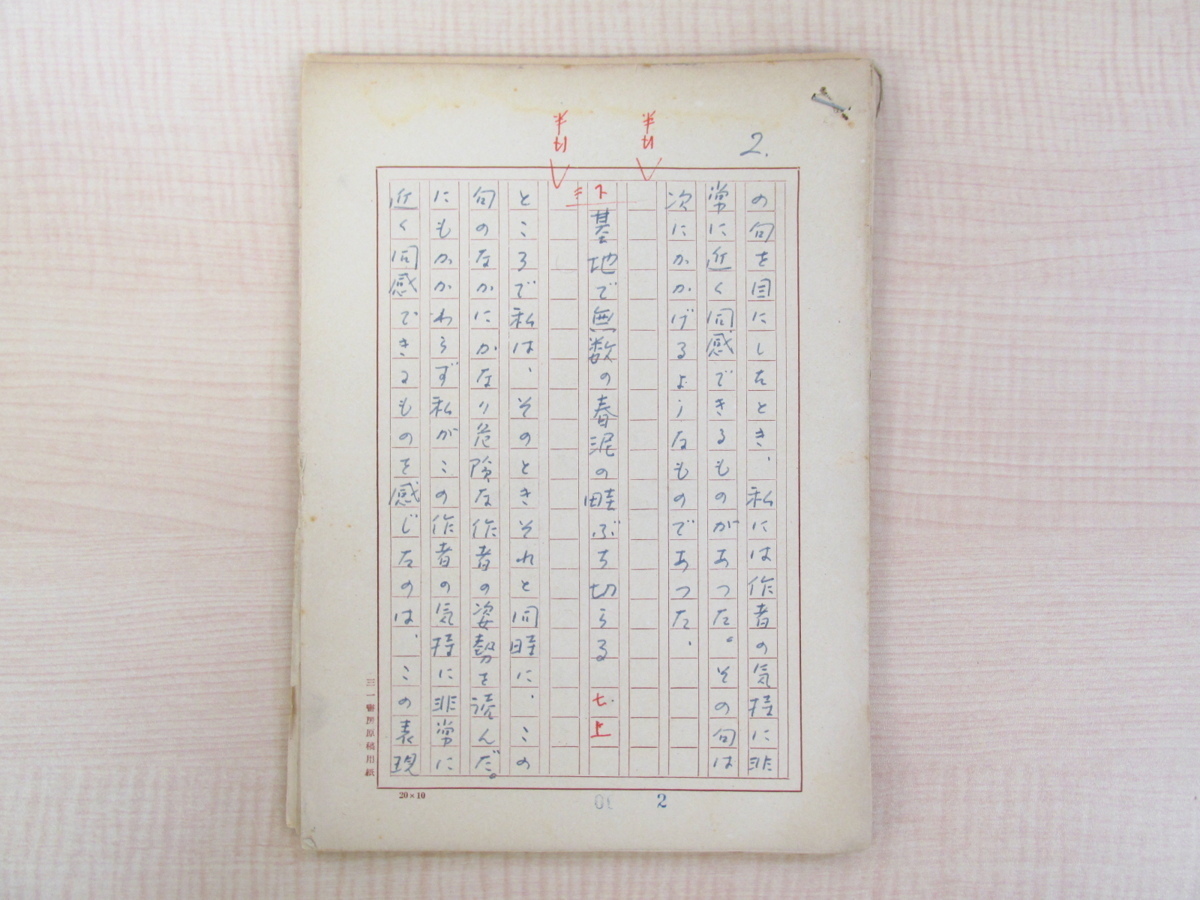 2.
半切
半切
の句を目にしたとき、私には作者の気持に非
常に近く同感できるものがあった。その句は
次にかかげるようなものであった、
下ゲ 基地で無数の春泥の畦ぶち切らる 七.上
ところで私は、そのときそれと同時に、この
句のなかにかなり危険な作者の姿勢を読んだ。
にもかかわらず私がこの作者の気持に非常に
近く同感できるものを感じたのは、この表現
三一書房原稿用紙
20×10
2